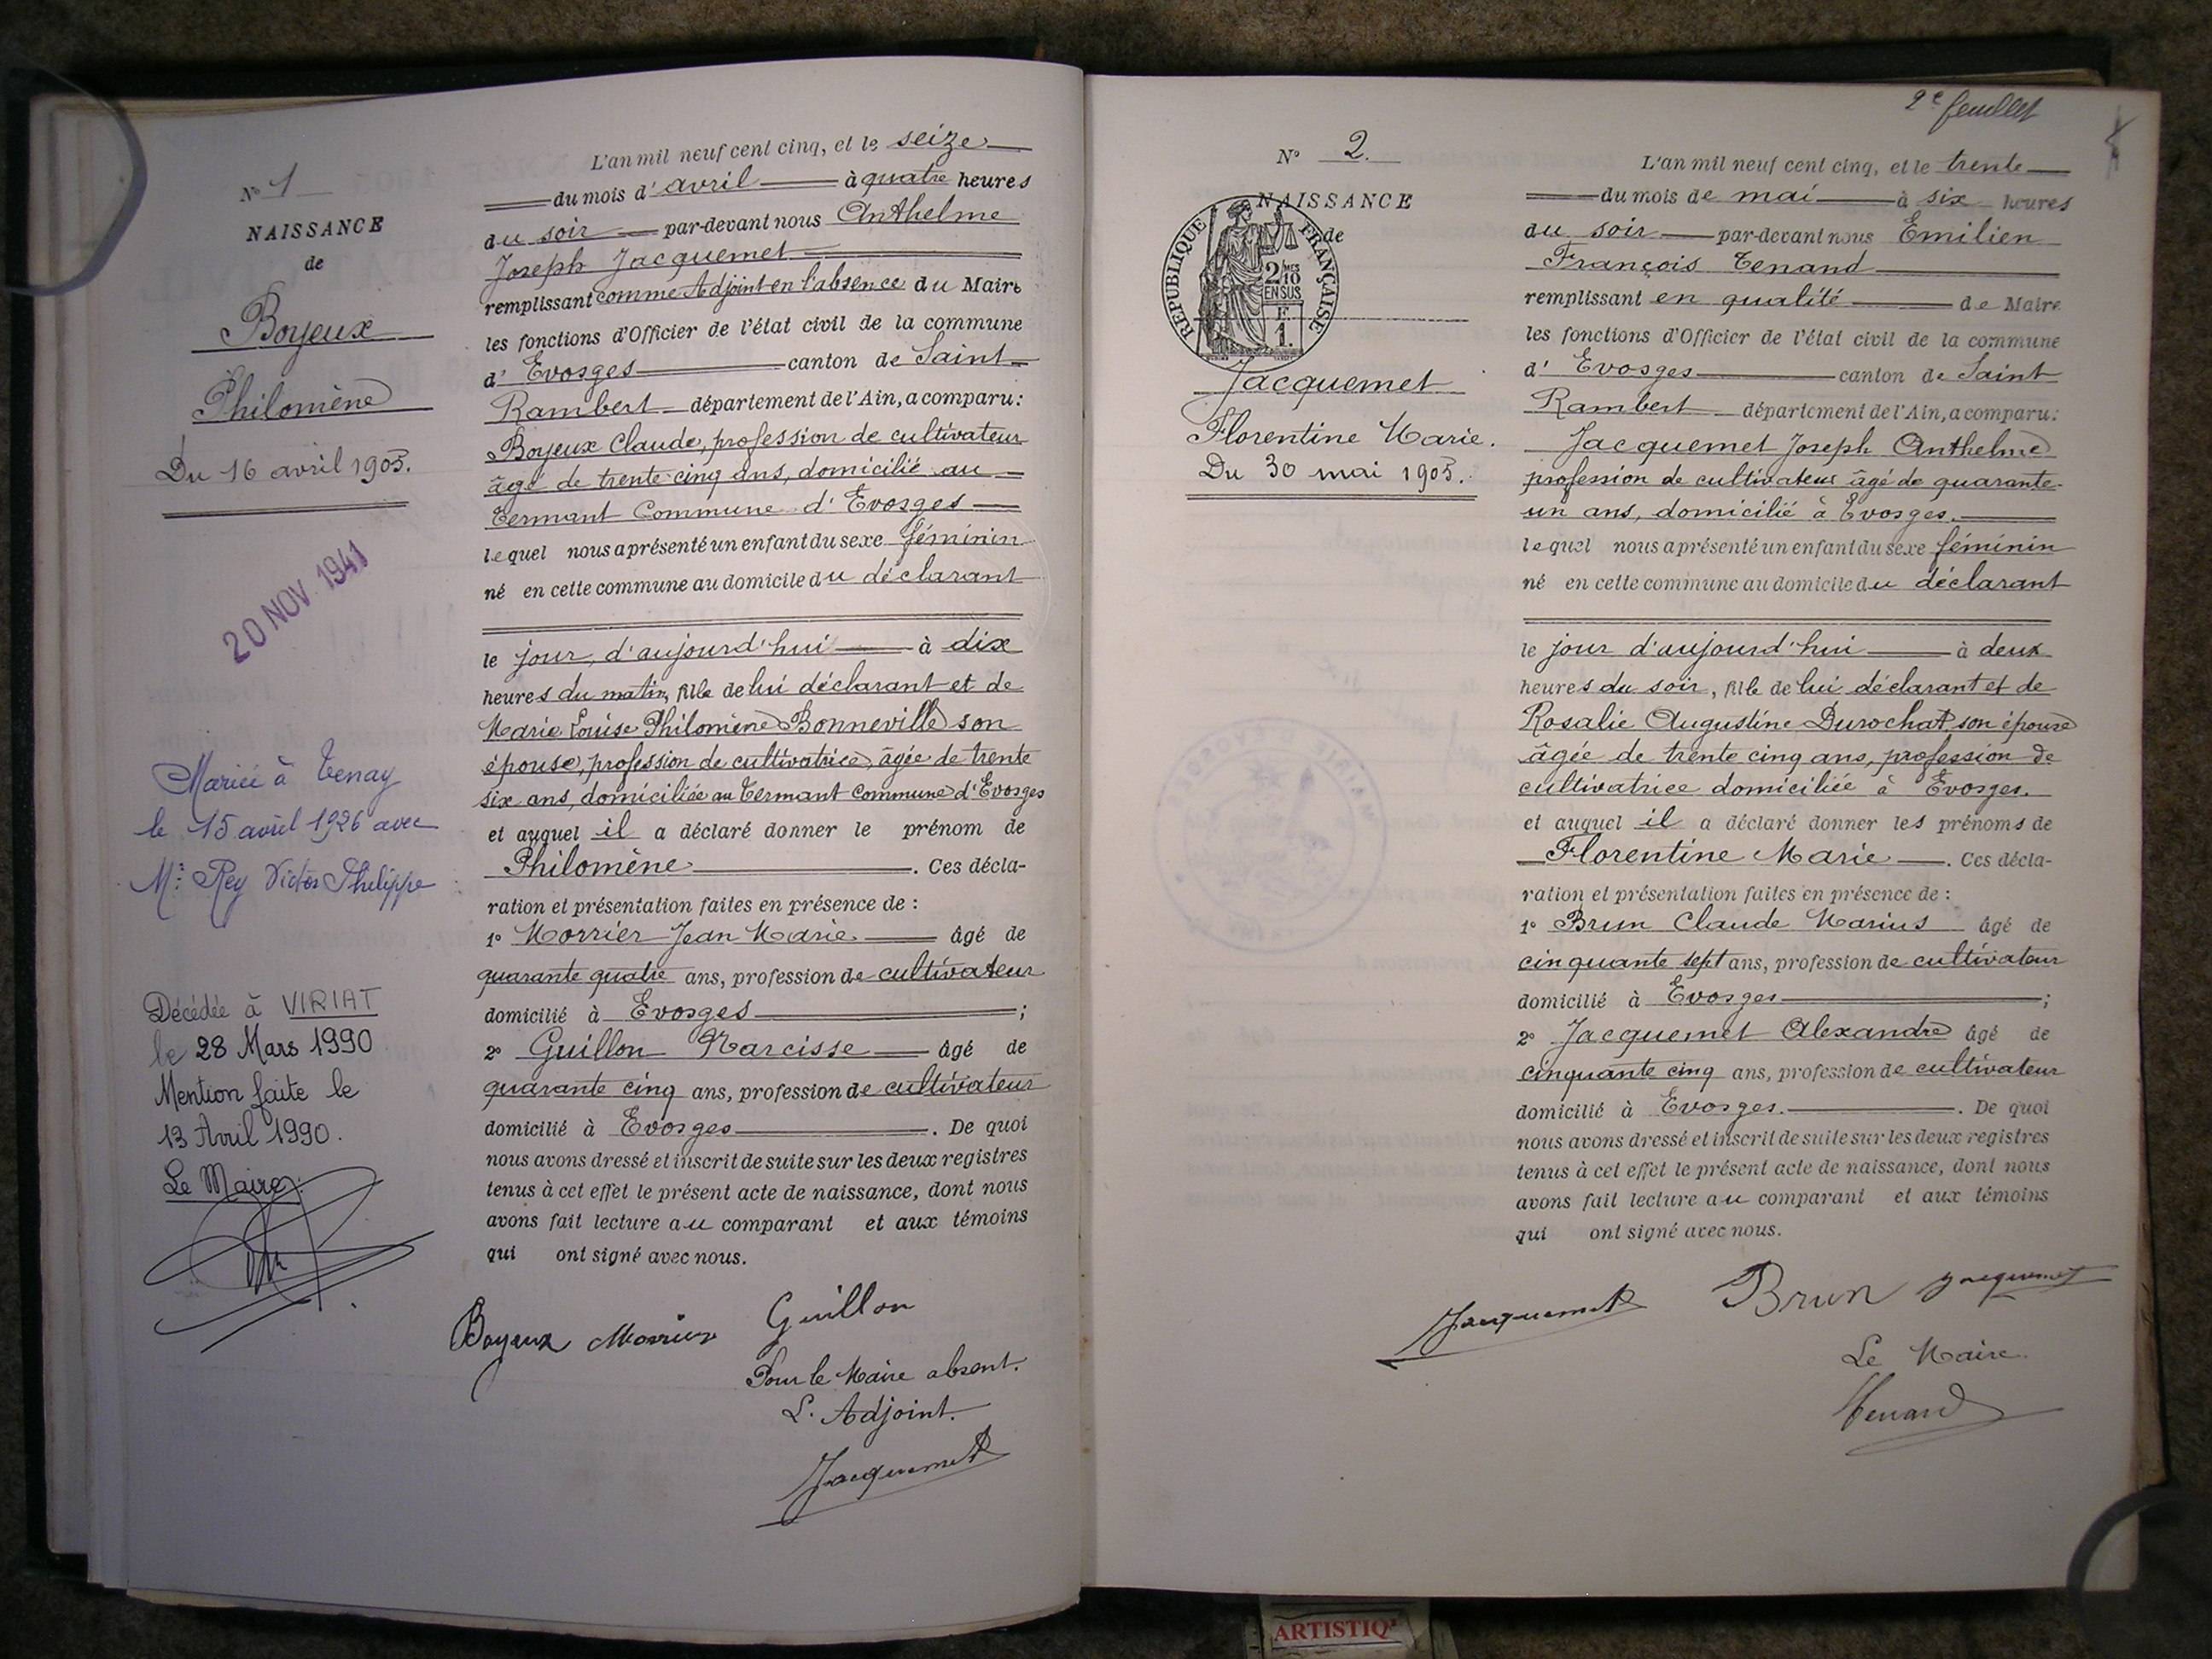 N° 1
NAISSANCE
de
Boyeux
Philomène
Du 16 avril 1905.
20 NOV. 1941
Mariée à Tenay
le 15 avril 1926 avec
Mr Rey Victor Philippe
Décédée à VIRIAT
le 28 Mars 1990
Mention faite le
13 Avril 1990.
Le Maire
L'an mil neuf cent cinq, et le seize
du mois d'avril à quatre heures
du soir par-devant nous Anthelme
Joseph Jacquemet
remplissant comme Adjoint en l'absence du Maire
les fonctions d'Officier de l'état civil de la commune
d' Evosges canton de Saint
Rambert département de l'Ain, a comparu:
Boyeux Claude, profession de cultivateur
âgé de trente-cinq ans, domicilié au
Termant Commune d'Evosges
lequel nous a présenté un enfant du sexe féminin
né en cette commune au domicile du déclarant
le jour, d'aujourd'hui à dix
heures du matin, fille de lui déclarant et de
Marie Louise Philomène Bonneville son
épouse, profession de cultivatrice, âgée de trente
six ans, domiciliée au Termant Commune d'Evosges
et auquel il a déclaré donner le prénom de
Philomène. Ces décla-
ration et présentation faites en présence de :
1° Morrier Jean Marie âgé de
quarante quatre ans, profession de cultivateur
domicilié à Evosges ;
2° Guillon Narcisse âgé de
quarante cinq ans, profession de cultivateur
domicilié à Evosges. De quoi
nous avons dressé et inscrit de suite sur les deux registres
tenus à cet effet le présent acte de naissance, dont nous
avons fait lecture au comparant et aux témoins
qui ont signé avec nous.
Boyeux Morrier Guillon
Pour le Maire absent.
L'Adjoint.
Jacquemet
2e feuillet
N° 2.
NAISSANCE
de
REPUBLIQUE FRANÇAISE
2 MES
10
EN SUS
F.
1.
Jacquemet
Florentine Marie.
Du 30 mai 1905.
L'an mil neuf cent cinq, et le trente
du mois de mai à six heures
du soir par-devant nous Emilien
François Tenand
remplissant en qualité de Maire
les fonctions d'Officier de l'état civil de la commune
d' Evosges canton de Saint
Rambert département de l'Ain, a comparu:
Jacquemet Joseph Anthelme
profession de cultivateur âgé de quarante-
un ans, domicilié à Evosges.
lequel nous a présenté un enfant du sexe féminin
né en cette commune au domicile du déclarant
le jour d'aujourd'hui à deux
heures du soir, fille de lui déclarant et de
Rosalie Augustine Durochat, son épouse
âgée de trente cinq ans, profession de
cultivatrice domiciliée à Evosges.
et auquel il a déclaré donner les prénoms de
Florentine Marie. Ces décla-
ration et présentation faites en présence de :
1° Brun Claude Marius âgé de
cinquante sept ans, profession de cultivateur
domicilié à Evosges ;
2° Jacquemet Alexandre âgé de
cinquante cinq ans, profession de cultivateur
domicilié à Evosges. De quoi
nous avons dressé et inscrit de suite sur les deux registres
tenus à cet effet le présent acte de naissance, dont nous
avons fait lecture au comparant et aux témoins
qui ont signé avec nous.
Jacquemet Brun Jacquemet
Le Maire.
Tenand
ARTISTIQ